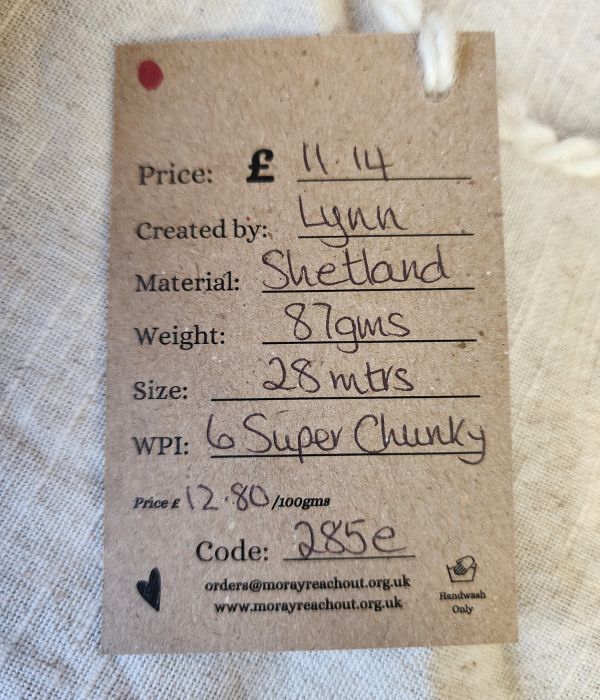 Price: £ 11.14
Created by: Lynn
Material: Shetland
Weight: 87gms
Size: 28 mtrs
WPI: 6 Super Chunky
Price £ 12.80 /100gms
Code: 285e
orders@morayreachout.org.uk
www.morayreachout.org.uk
Handwash
Only